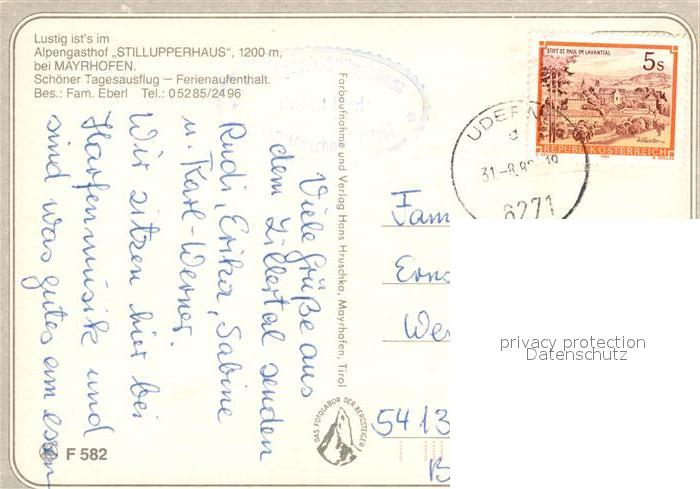 Lustig ist's im
Alpengasthof „STILLUPPERHAUS", 1200 m,
bei MAYRHOFEN.
Schöner Tagesausflug — Ferienaufenthalt.
Bes.: Fam. Eberl Tel.: 05285/2496
Viele Grüße aus
dem Zillertal senden
Rudi, Erika, Sabine
u. Karl-Werner.
Wir sitzen hier bei
Harfenmusik und
sind was gutes am essen
F 582
Farbaufnahme und Verlag Hans Hruschka, Mayrhofen, Tirol
DAS FOTOLABOR DER BERGSTEIGER
STIFT ST. PAUL IM LAVANTTAL
5s
REPUBLIK ÖSTERREICH
UDERNS
6271
Fam
5413
privacy protection
Datenschutz